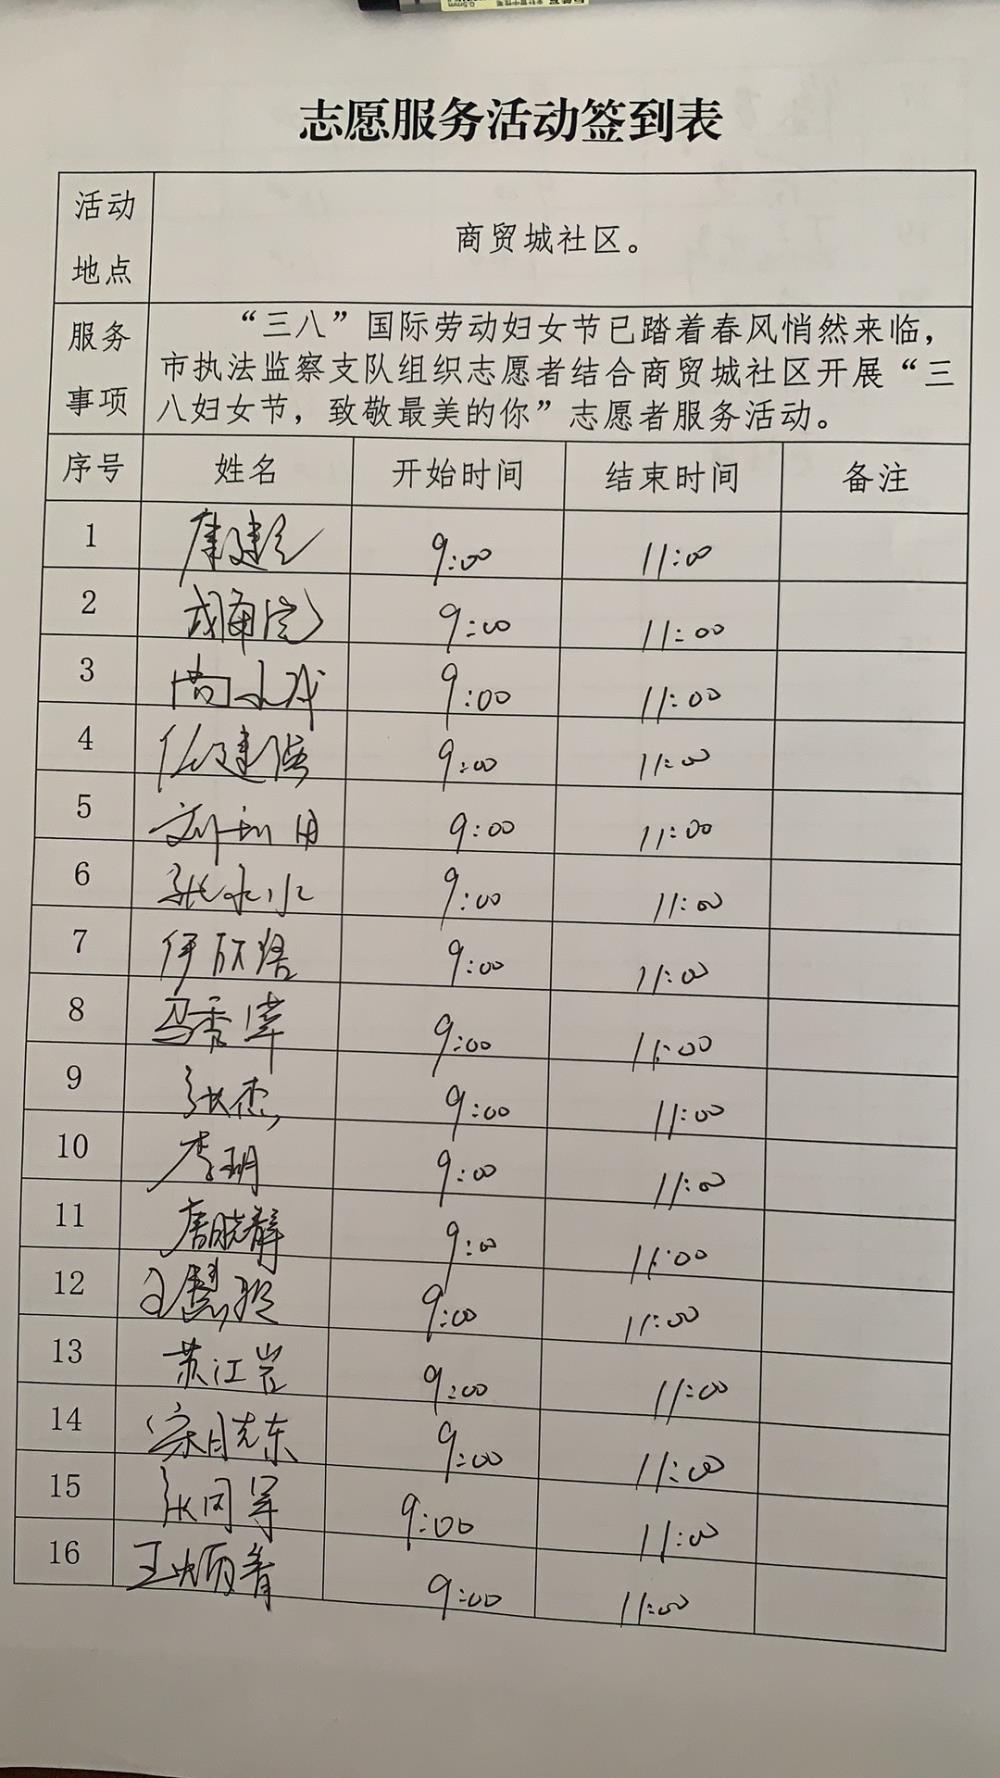 志愿服务活动签到表
活动地点 商贸城社区。
服务事项 “三八”国际劳动妇女节已踏着春风悄然来临，
市执法监察支队组织志愿者结合商贸城社区开展“三
八妇女节，致敬最美的你”志愿者服务活动。
序号 姓名 开始时间 结束时间 备注
1 9:00 11:00
2 9:00 11:00
3 9:00 11:00
4 9:00 11:00
5 9:00 11:00
6 9:00 11:00
7 9:00 11:00
8 9:00 11:00
9 张杰 9:00 11:00
10 李玥 9:00 11:00
11 唐晓静 9:00 11:00
12 9:00 11:00
13 苏江岩 9:00 11:00
14 宋晓东 9:00 11:00
15 张同军 9:00 11:00
16 9:00 11:00